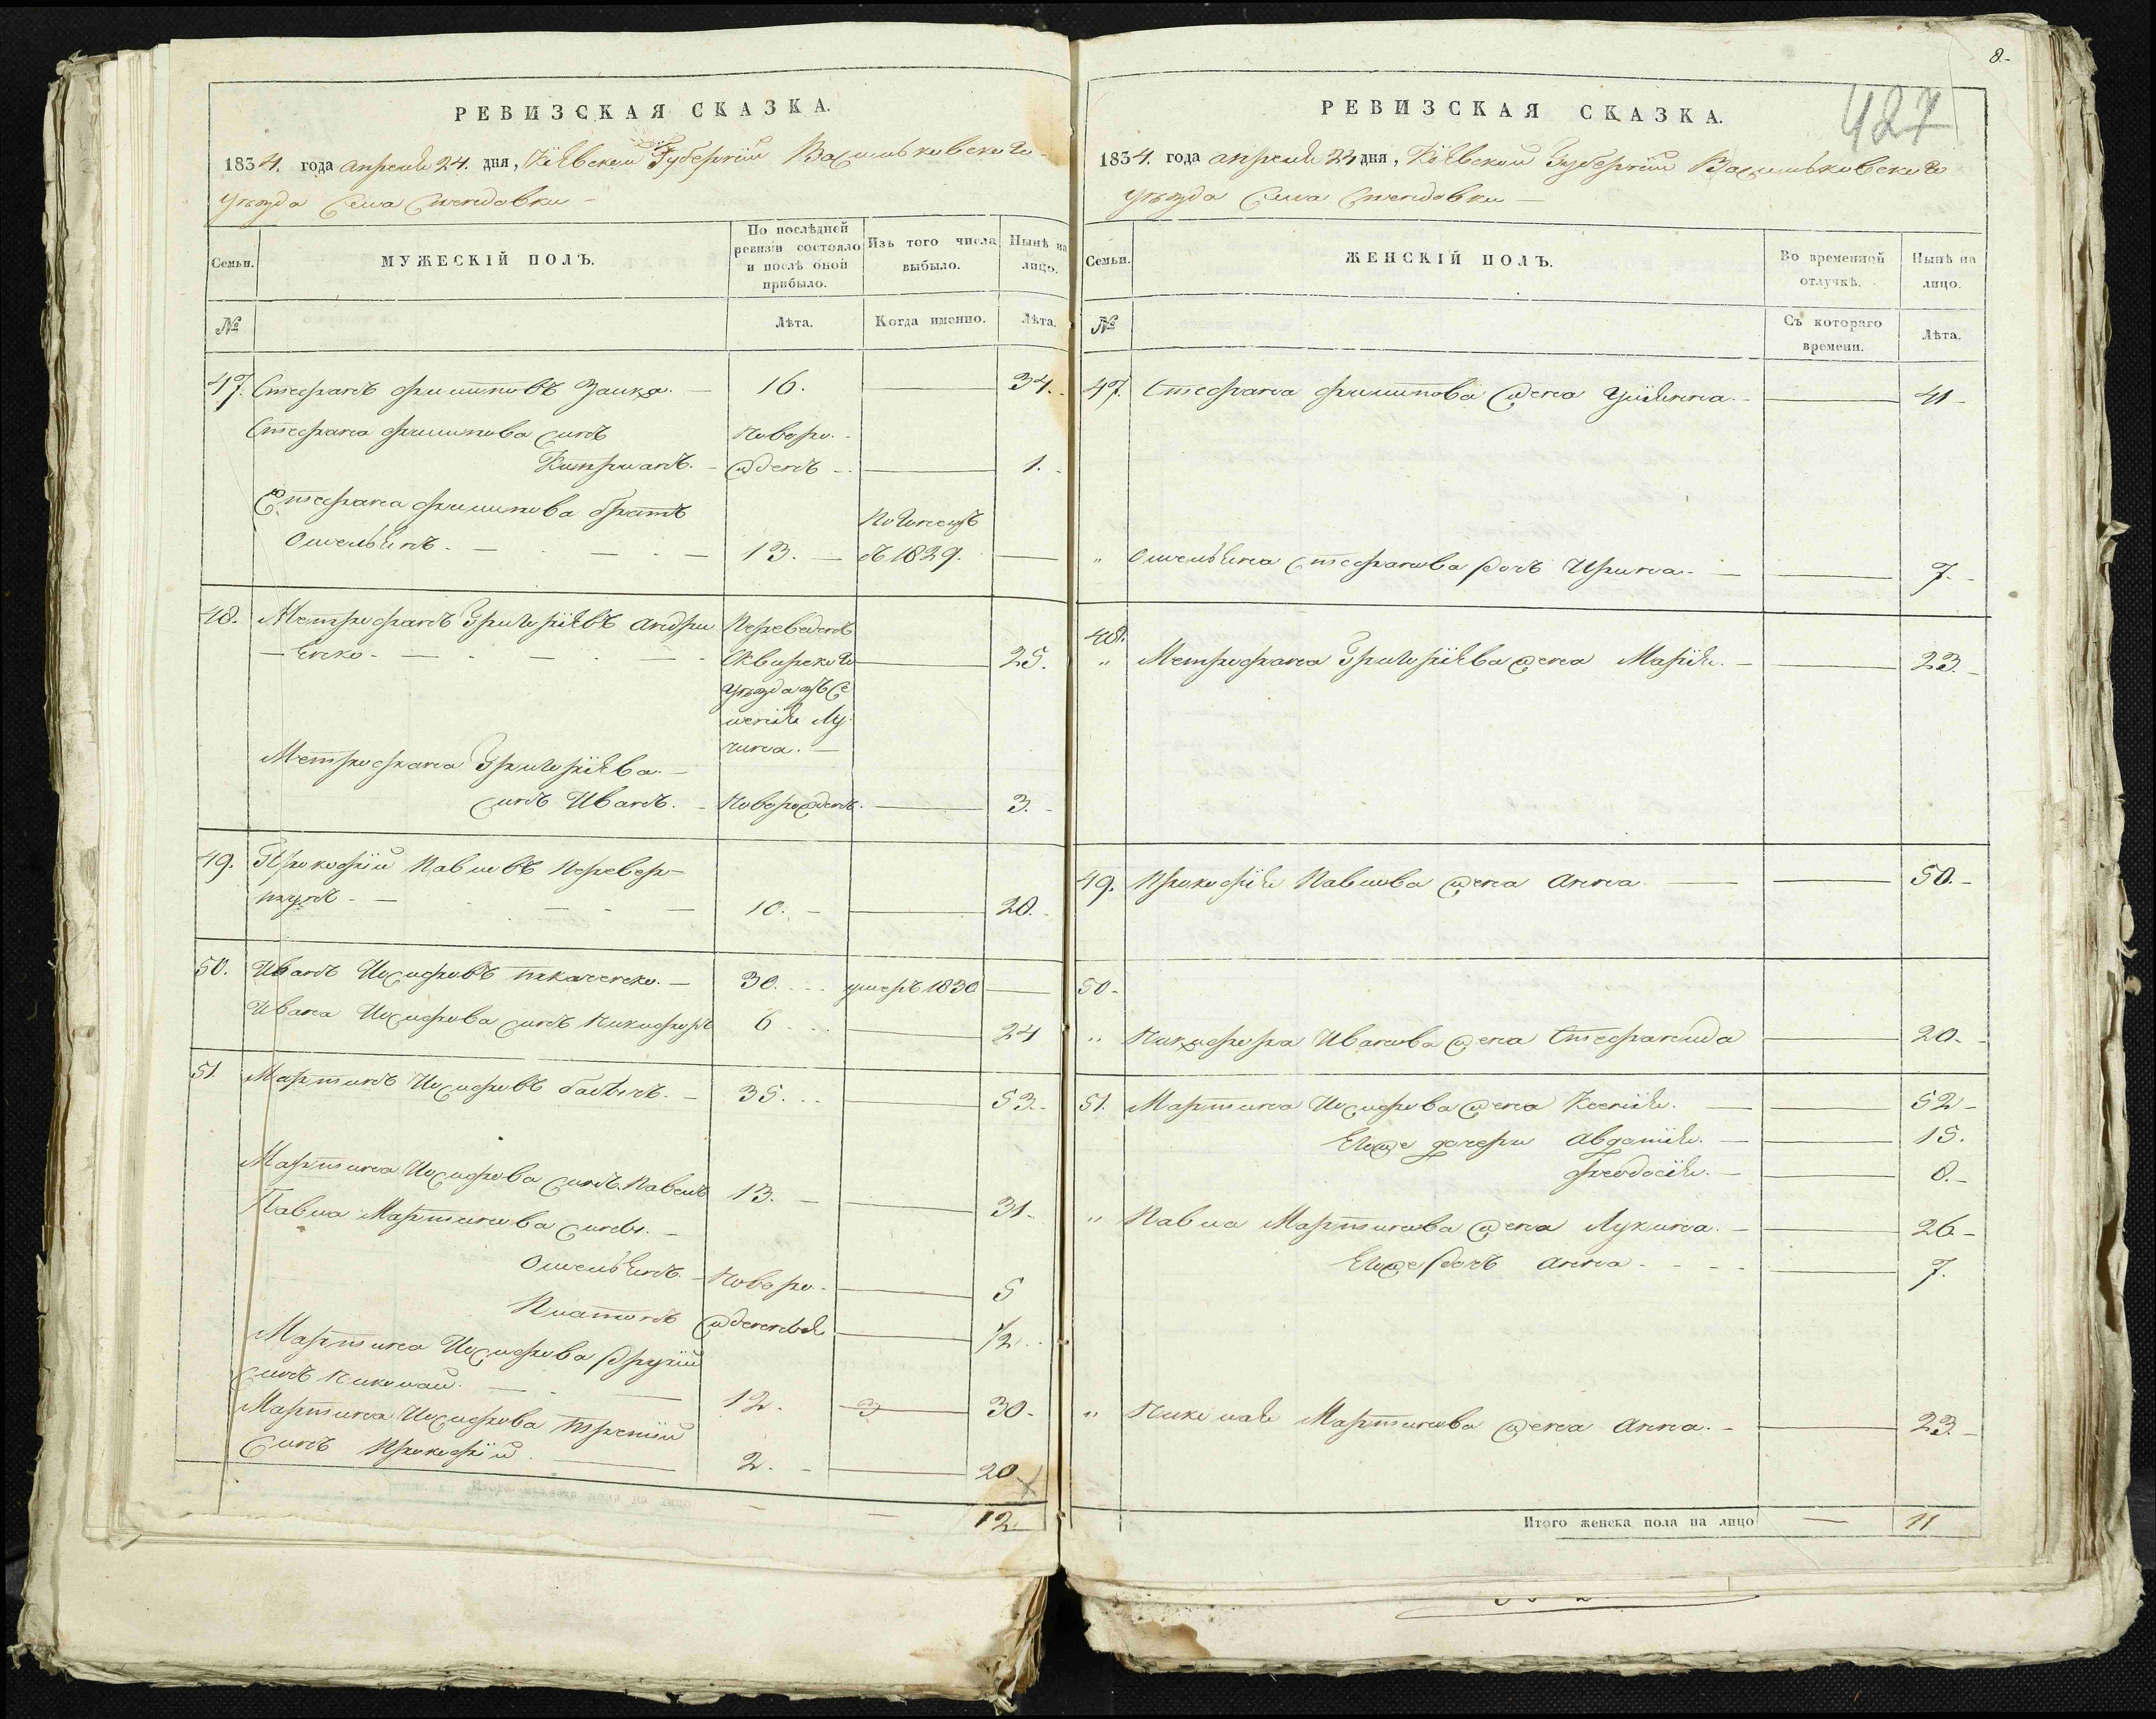 РЕВИЗСКАЯ СКАЗКА.
1834. года апреля 24. дня, Кіевской Губерніи Васильковскаго
уѣзда Села
Семьи.
МУЖЕСКІЙ ПОЛЪ.
По послѣдней
ревизіи состояло
и послѣ оной
прибыло.
Изъ того числа
выбыло.
Нынѣ на
лицо.
№
Лѣта.
Когда именно.
Лѣта.
47. Стефанъ Филиповъ Заика. 16. 34.
Стефана Филипова сынъ Новоро-
Кипріанъ. жденъ 1.
Стефана Филипова братъ
Омельянъ. 13. 1829.
48. Метрофанъ Григоріевъ Андри Переведенъ
енко Сквирскаго 25.
уѣзда изъ Се
ленія Лу-
чина.
Метрофана Григоріева
сынъ Иванъ. Новорожденъ. 3.
49. Прокофій Павловъ Перевер-
тунъ 10. 28.
50. Иванъ Иосифовъ Ткаченко. 30. умеръ 1830
Ивана Иосифова сынъ Никифоръ 6 24
51. Мартинъ Иосифовъ 35. 53.
Мартина Иосифова сынъ Павелъ 13. 31.
Павла Мартинова сыны.
Омельянъ. Новоро- 5
Платонъ жденныя 1/2
Мартина Иосифова другій
сынъ Николай. 12. 3 30.
Мартина Иосифова третій
сынъ Прокофій 2. 20
12
8.
427
РЕВИЗСКАЯ СКАЗКА.
1834. года апреля 24 дня, Кіевской Губерніи Васильковскаго
уѣзда Села
Семьи.
ЖЕНСКІЙ ПОЛЪ.
Во временной
отлучкѣ.
Нынѣ на
лицо.
№
Съ котораго
времени.
Лѣта.
47. Стефана Филипова жена Уліянна. 41
" Омельяна Стефанова дочъ Ирина. 7.
48.
" Метрофана Григоріева жена Марія. 23.
49. Прокофія Павлова жена Анна. 50.
50.
" Никифора Иванова жена Стефанида 20.
51. Мартина Иосифова жена Ксенія. 52
Егоже дочери Авдотія. 15.
Феодосія. 8.
" Павла Мартинова жена Лукина. 26
Егоже дочъ Анна 7.
" Николая Мартинова жена Анна. 23.
Итого женска пола на лицо 11